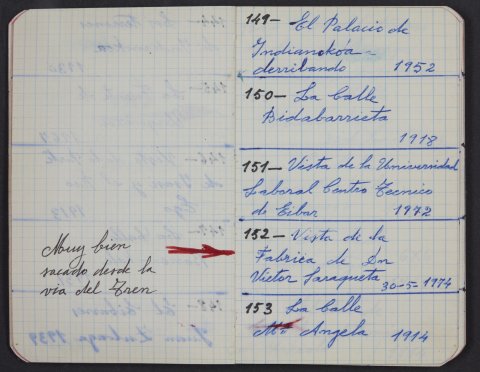 Muy bien
sacado desde la
via del Tren
149- El Palacio de
Indianokóa-
derribando 1952
150- La Calle
Bidabarrieta
1918
151- Vista de la Universidad
Laboral Centro Tecnico
de Eibar 1972
152- Vista de la
Fabrica de Dn
Victor Saraqueta
30-5-1974
153 La Calle
Mª Angela 1914